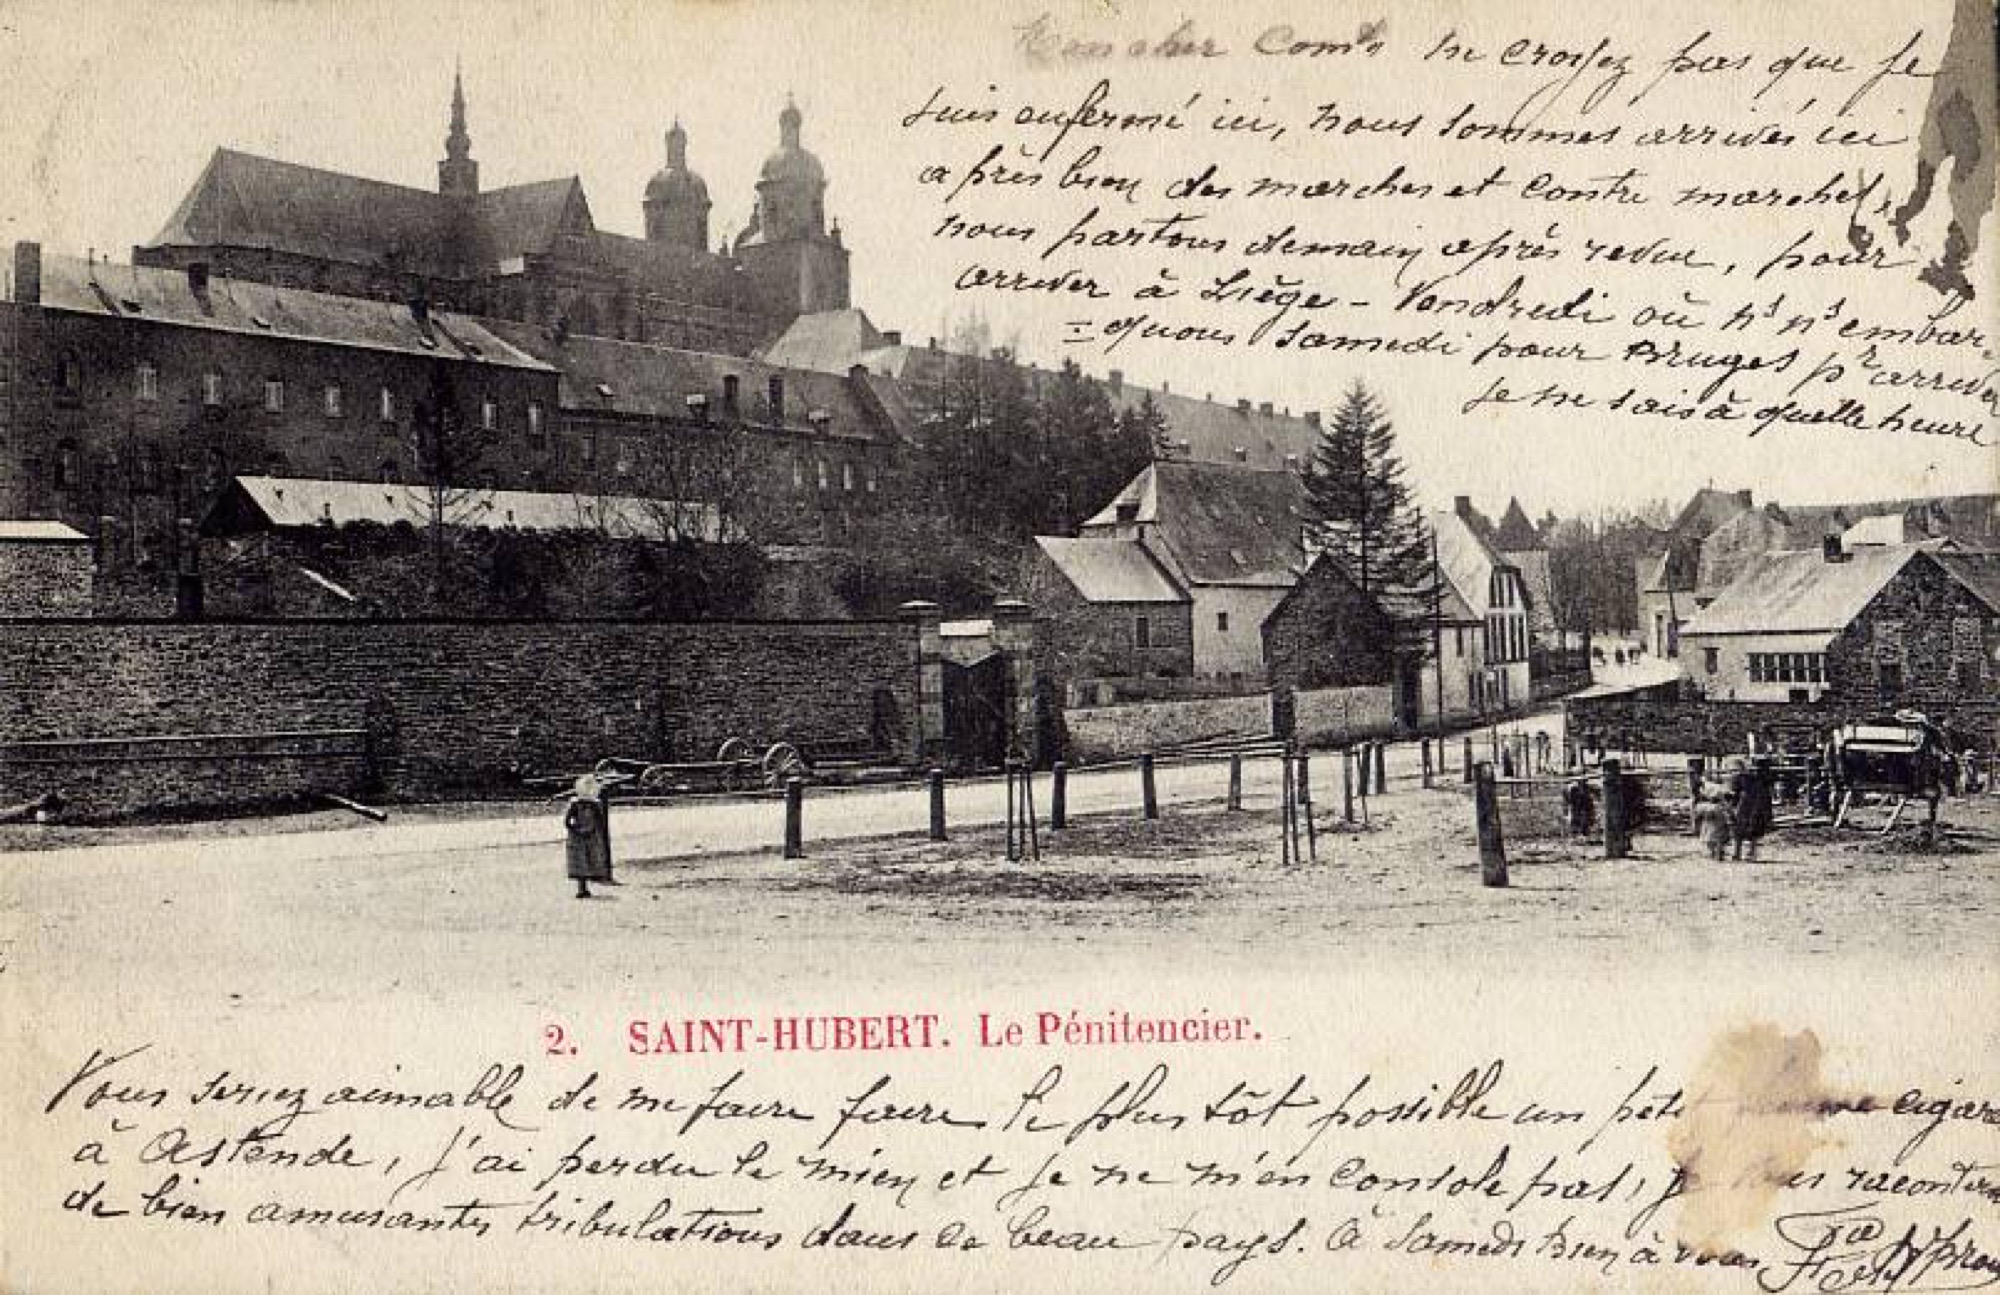 cher Comte ne croyez pas que je
suis enfermé ici, nous sommes arrivés ici
après bien des marches et contre marches,
nous partons demain après revue, pour
arriver à Liège - Vendredi où ns ns embar-
=quons samedi pour Bruges pr arriver
je ne sais à quelle heure
2. SAINT-HUBERT. Le Pénitencier.
Vous seriez aimable de me faire faire le plus tôt possible un petit cigare
à Ostende, j'ai perdu le mien et je ne m'en console pas, je vous raconterai
de bien amusantes tribulations dans ce beau pays. à Samedi bien à vous